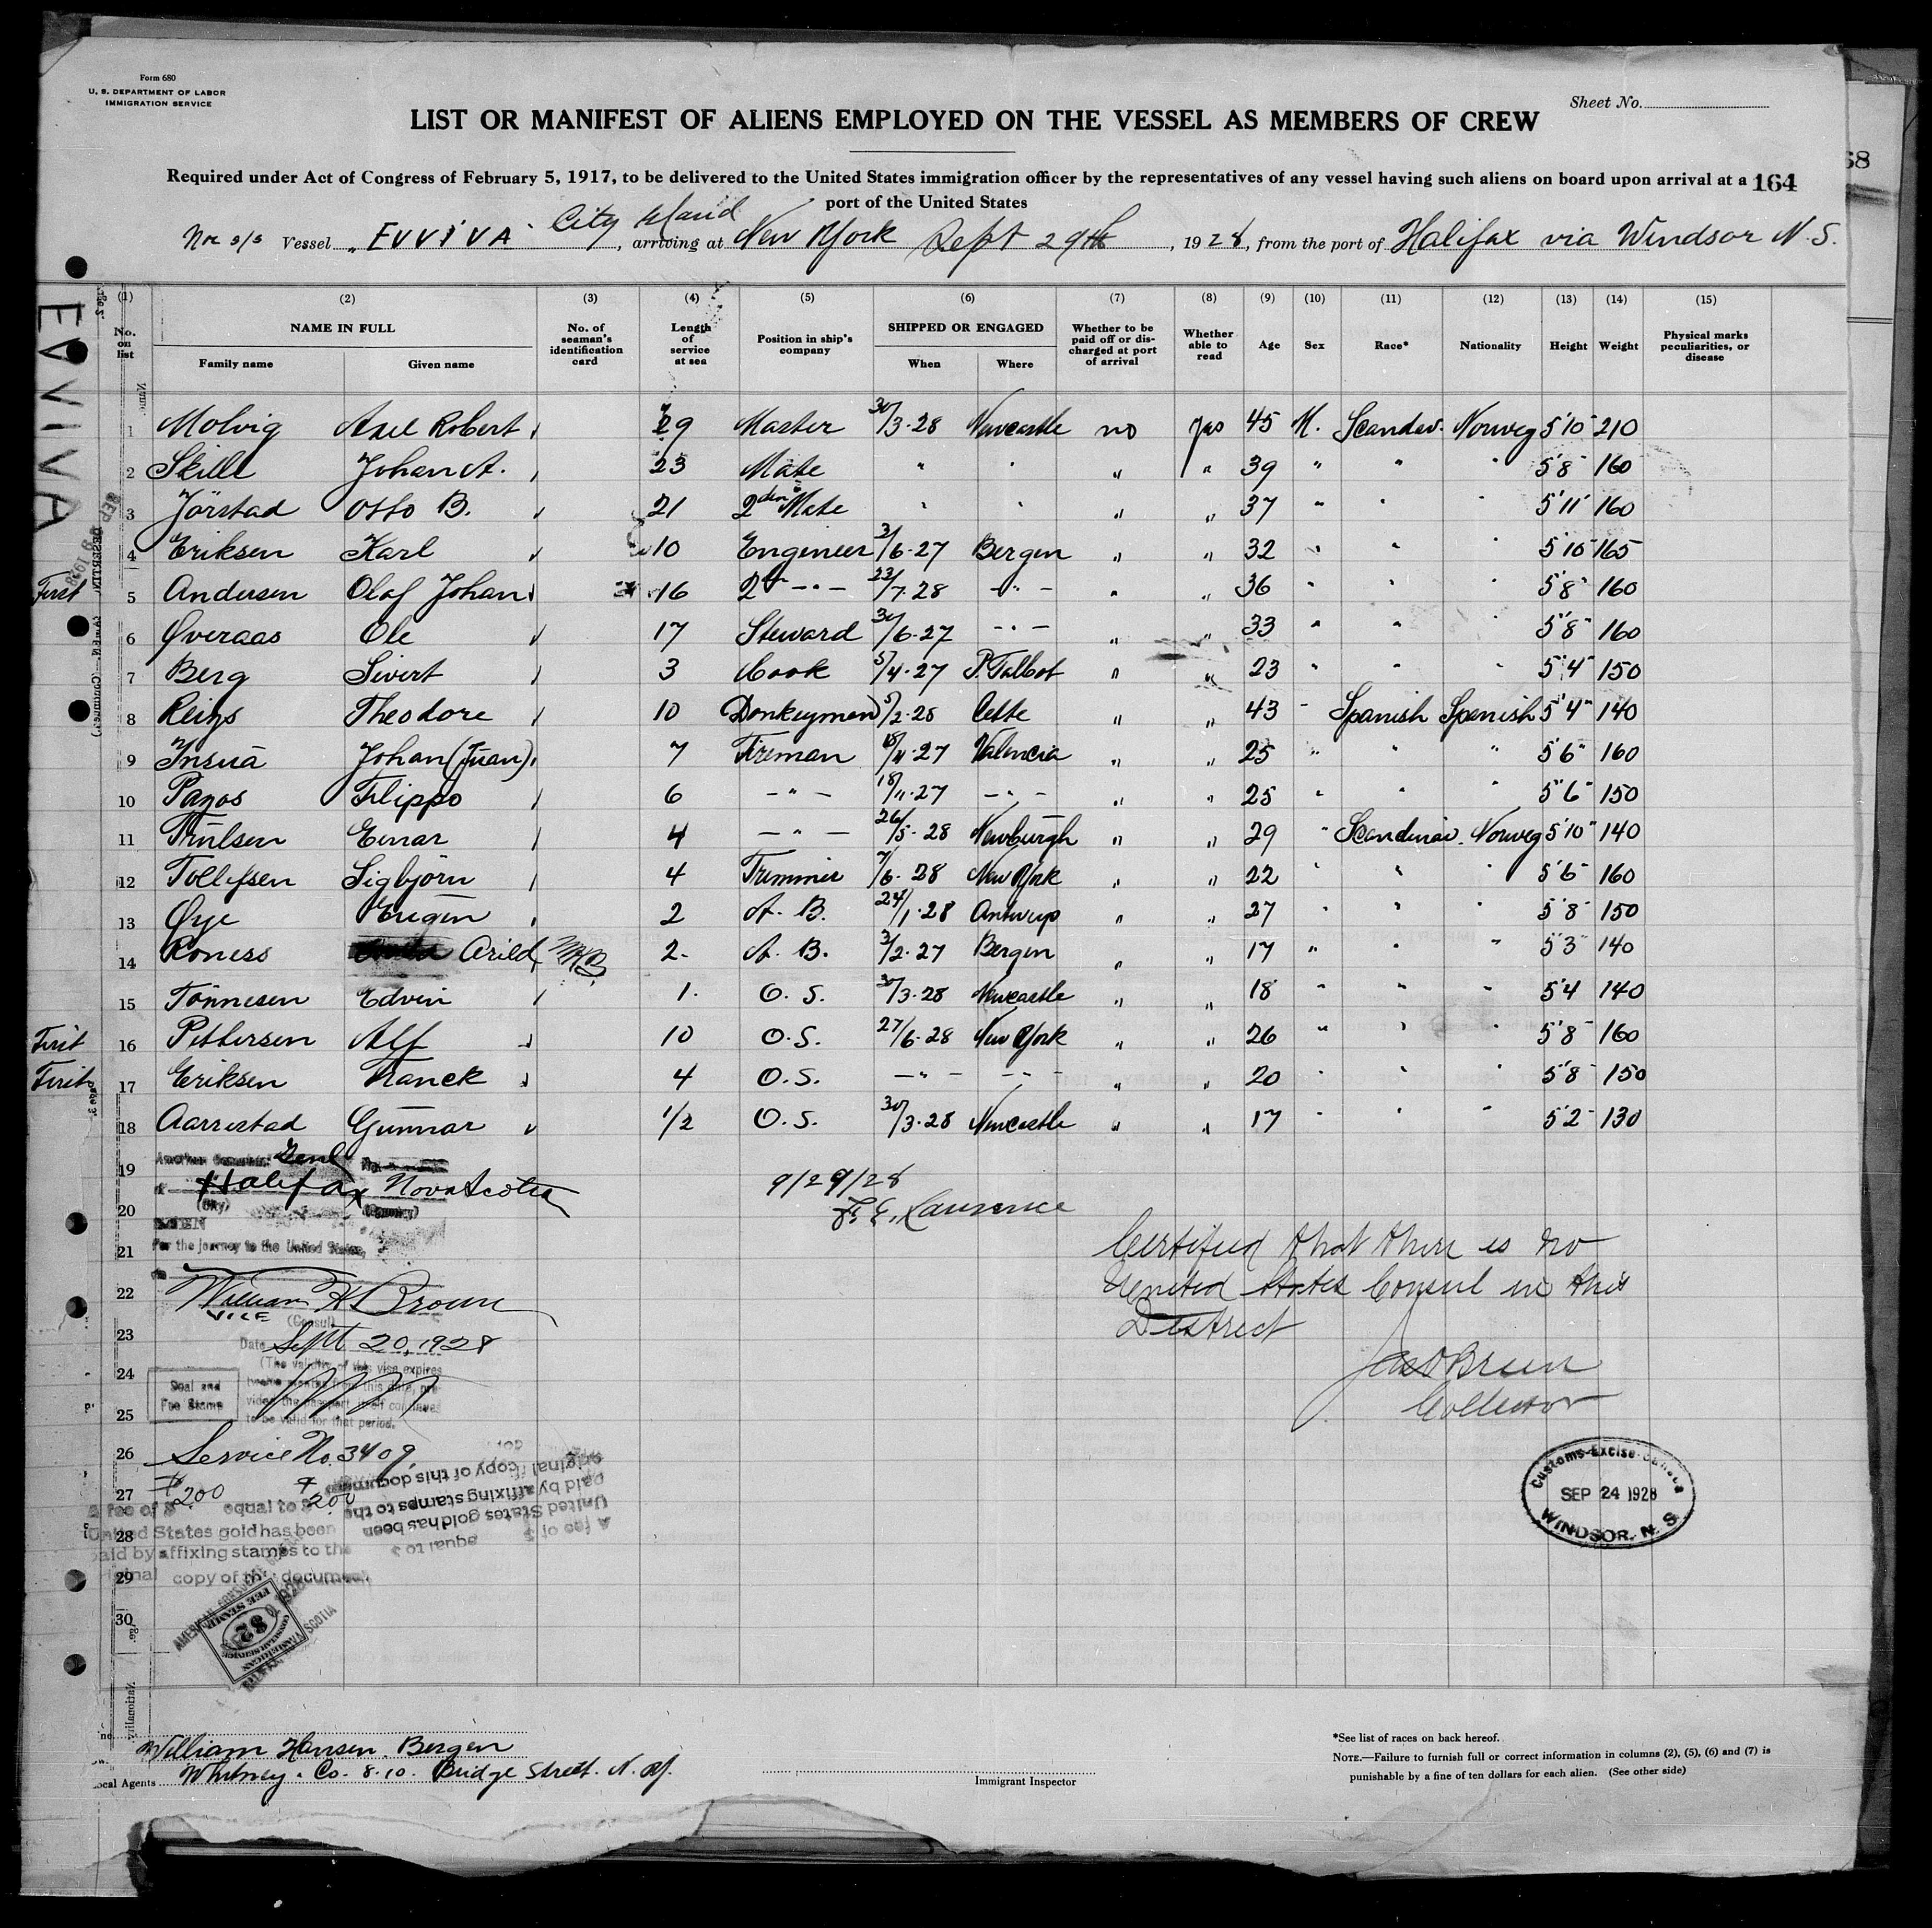 Form 680
U. S. DEPARTMENT OF LABOR
IMMIGRATION SERVICE
Sheet No.
LIST OR MANIFEST OF ALIENS EMPLOYED ON THE VESSEL AS MEMBERS OF CREW
Required under Act of Congress of February 5, 1917, to be delivered to the United States immigration officer by the representatives of any vessel having such aliens on board upon arrival at a
port of the United States
164
68
City Island
Nor s/s Vessel "EVVIVA", arriving at New York Sept 29th, 1928, from the port of Halifax via Windsor N.S.
EVVIVA
(1) (2) (3) (4) (5) (6) (7) (8) (9) (10) (11) (12) (13) (14) (15)
No. on list NAME IN FULL Family name Given name No. of seaman's identification card Length of service at sea Position in ship's company SHIPPED OR ENGAGED When Where Whether to be paid off or discharged at port of arrival Whether able to read Age Sex Race* Nationality Height Weight Physical marks peculiarities, or disease
1 Molvig Axel Robert 29 Master 30/3-28 Newcastle no yes 45 M. Scandav. Norweg 5'10" 210
2 Skille Johan A. 23 Mate " " " " 39 " " " 5'8" 160
3 Jörstad Otto B. 21 2den Mate " " " " 37 " " " 5'11" 160
4 Eriksen Karl 10 Engineer 3/6-27 Bergen " " 32 " " " 5'10" 165
First 5 Andersen Olaf Johan 16 2 -"- 23/7-28 -"- " " 36 " " " 5'8" 160
6 Øveraas Ole 17 Steward 30/6-27 -"- " " 33 " " " 5'8" 160
7 Berg Sivert 3 Cook 5/4-27 P. Talbot " " 23 " " " 5'4" 150
8 Reigs Theodore 10 Donkeyman 5/2-28 Cette " " 43 " Spanish Spanish 5'4" 140
9 Insua Johan (Juan) 7 Fireman 18/11-27 Valencia " " 25 " " " 5'6" 160
10 Pazos Filippo 6 -"- 18/11-27 -"- " " 25 " " " 5'6" 150
11 Trulsen Einar 4 -"- 26/5-28 Newburgh " " 29 " Scandinav. Norweg 5'10" 140
12 Tollefsen Sigbjörn 4 Trimmer 7/6-28 New York " " 22 " " " 5'6" 160
13 Øye Eugen 2 A. B. 24/1-28 Antwerp " " 27 " " " 5'8" 150
14 Roness Arild 2 A. B. 3/2-27 Bergen " " 17 " " " 5'3" 140
15 Tönnesen Edvin 1 O. S. 30/3-28 Newcastle " " 18 " " " 5'4 140
First 16 Pettersen Alf 10 O.S. 27/6-28 New York " " 26 " " " 5'8" 160
First 17 Eriksen Franck 4 O.S. -"- -"- " " 20 " " " 5'8" 150
18 Aarrestad Gunnar 1/2 O. S. 30/3-28 Newcastle " " 17 " " " 5'2" 130
19 American Genl
Halifax Nova Scotia
20 (City) (Country)
9/29/28
F. E. Laurence
21 For the journey to the United States,
22 William H Brown
VICE (Consul)
23 Date Sept 20, 1928
(The validity of this visa expires
24 twelve months from this date, provided the passport itself continues
25 to be valid for that period.
Seal and
Fee Stamp
Certified that there is no
United States Consul in this
District
Jas O'Brien
Collector
26 Service No. 3409
27 A fee of $ 2.00 equal to $ 2.00
28 United States gold has been
paid by affixing stamps to the
29 original copy of this document
30
A fee of $ equal to $
United States gold has been
paid by affixing stamps to the
original copy of this document
AMERICAN CONSULAR SERVICE
FEE STAMP
$2
Customs-Excise-Canada
SEP 24 1928
WINDSOR, N. S.
William Hansen. Bergen
Local Agents Whitney. Co. 8-10. Bridge Street. N. Y.
Immigrant Inspector
*See list of races on back hereof.
NOTE.—Failure to furnish full or correct information in columns (2), (5), (6) and (7) is
punishable by a fine of ten dollars for each alien. (See other side)